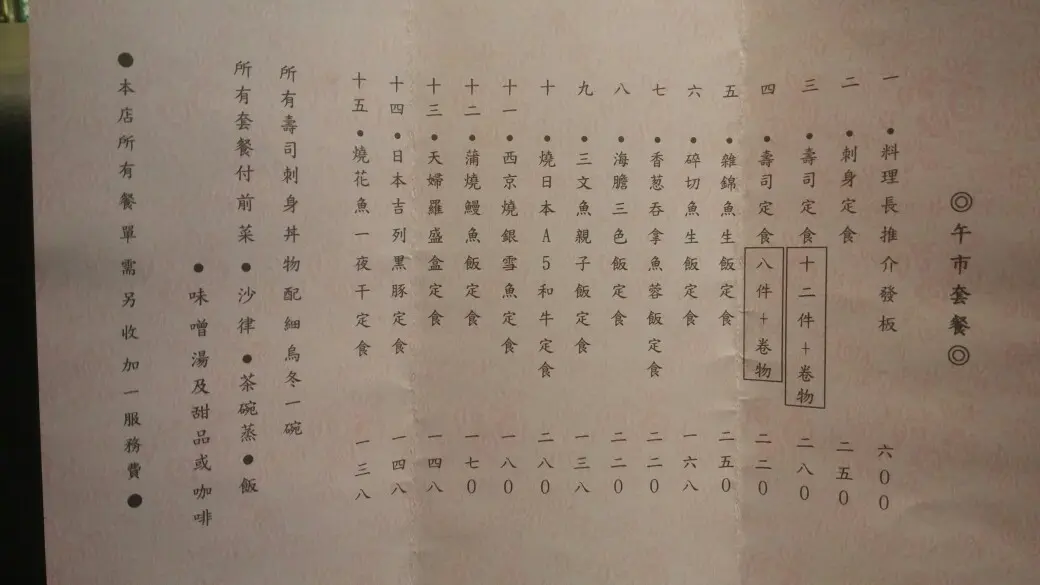 ◎午市套餐◎
一 •料理長推介發板 六00
二 •刺身定食 二五0
三 •壽司定食 十二件+卷物 二八0
四 •壽司定食 八件+卷物 二二0
五 •雜錦魚生飯定食 二五0
六 •碎切魚生飯定食 一六八
七 •香葱吞拿魚蓉飯定食 二二0
八 •海膽三色飯定食 二二0
九 •三文魚親子飯定食 一三八
十 •燒日本A5和牛定食 二八0
十一 •西京燒銀雪魚定食 一八0
十二 •蒲燒鰻魚飯定食 一七0
十三 •天婦羅盛盒定食 一四八
十四 •日本吉列黑豚定食 一四八
十五 •燒花魚一夜干定食 一三八
所有壽司刺身丼物配細烏冬一碗
所有套餐付前菜●沙律●茶碗蒸●飯
●味噌湯及甜品或咖啡
●本店所有餐單需另收加一服務費●